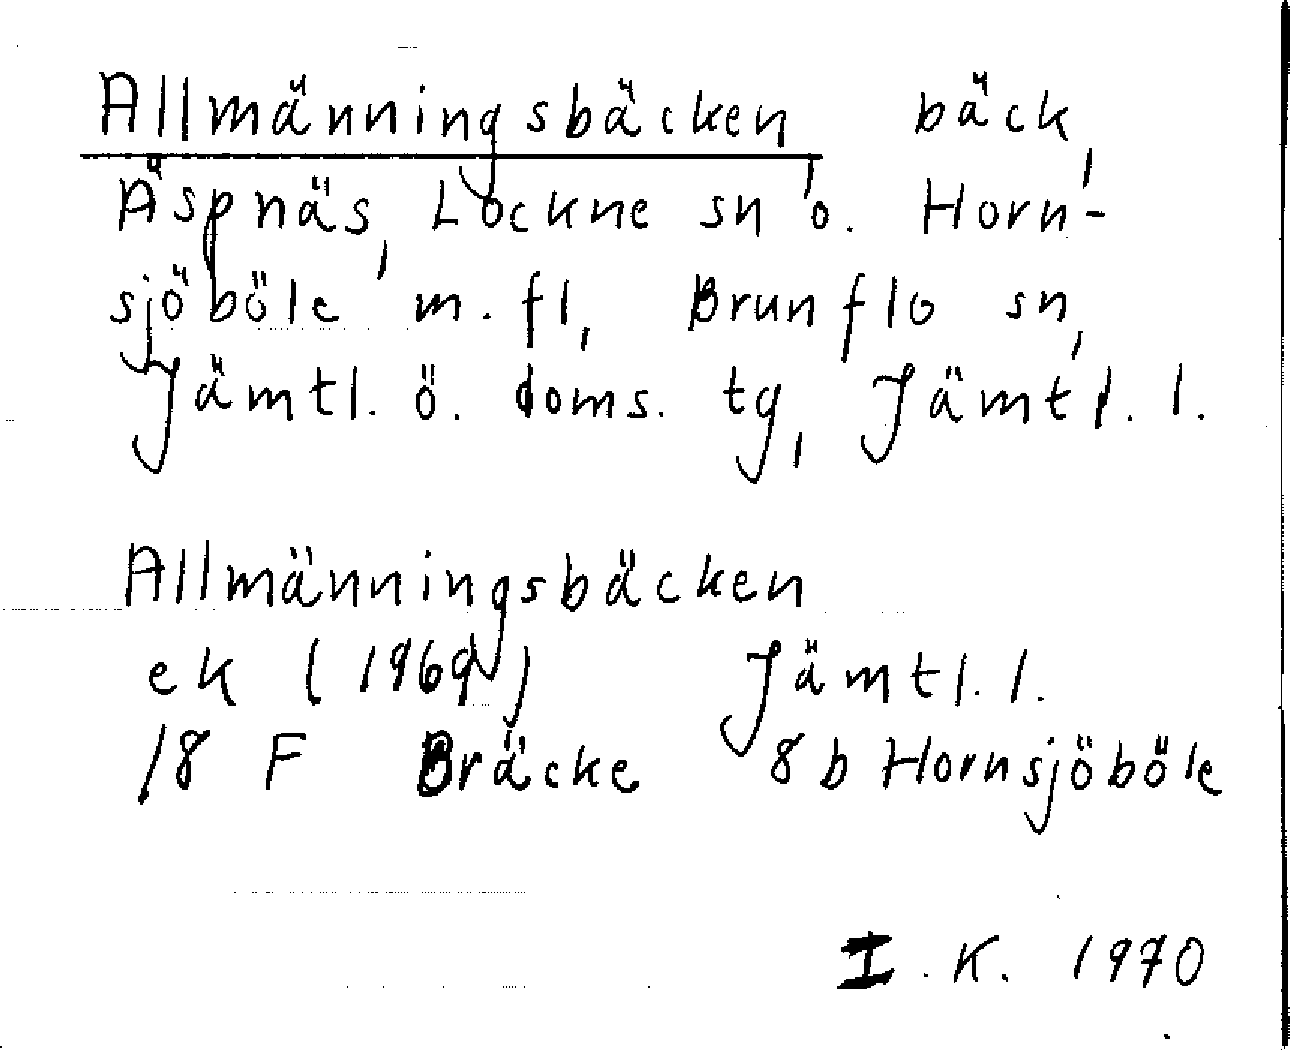 Allmänningsbäcken, bäck,
Äspnäs, Lockne sn o. Horn-
sjöböle m. fl, Brunflo sn,
Jämtl. ö. doms. tg, Jämtl. l.
Allmänningsbäcken
ek (1969) Jämtl. l.
18 F Bräcke 8 b Hornsjöböle
I. K. 1970